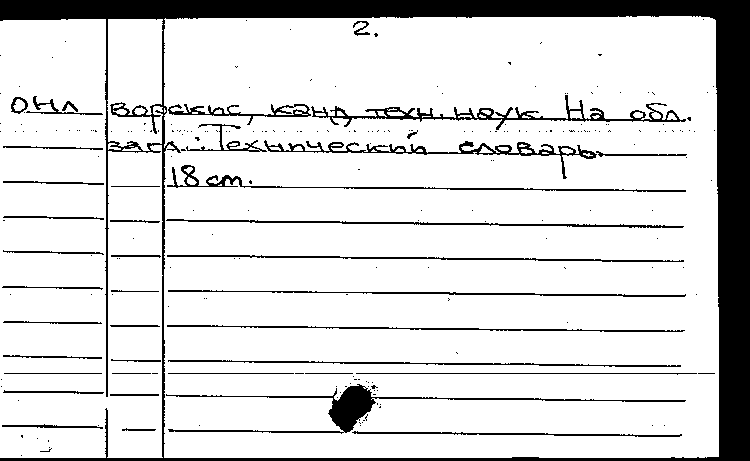 2.
ОНЛ ворскис, канд. техн. наук. На обл.
загл.: Технический словарь.
18 cm.